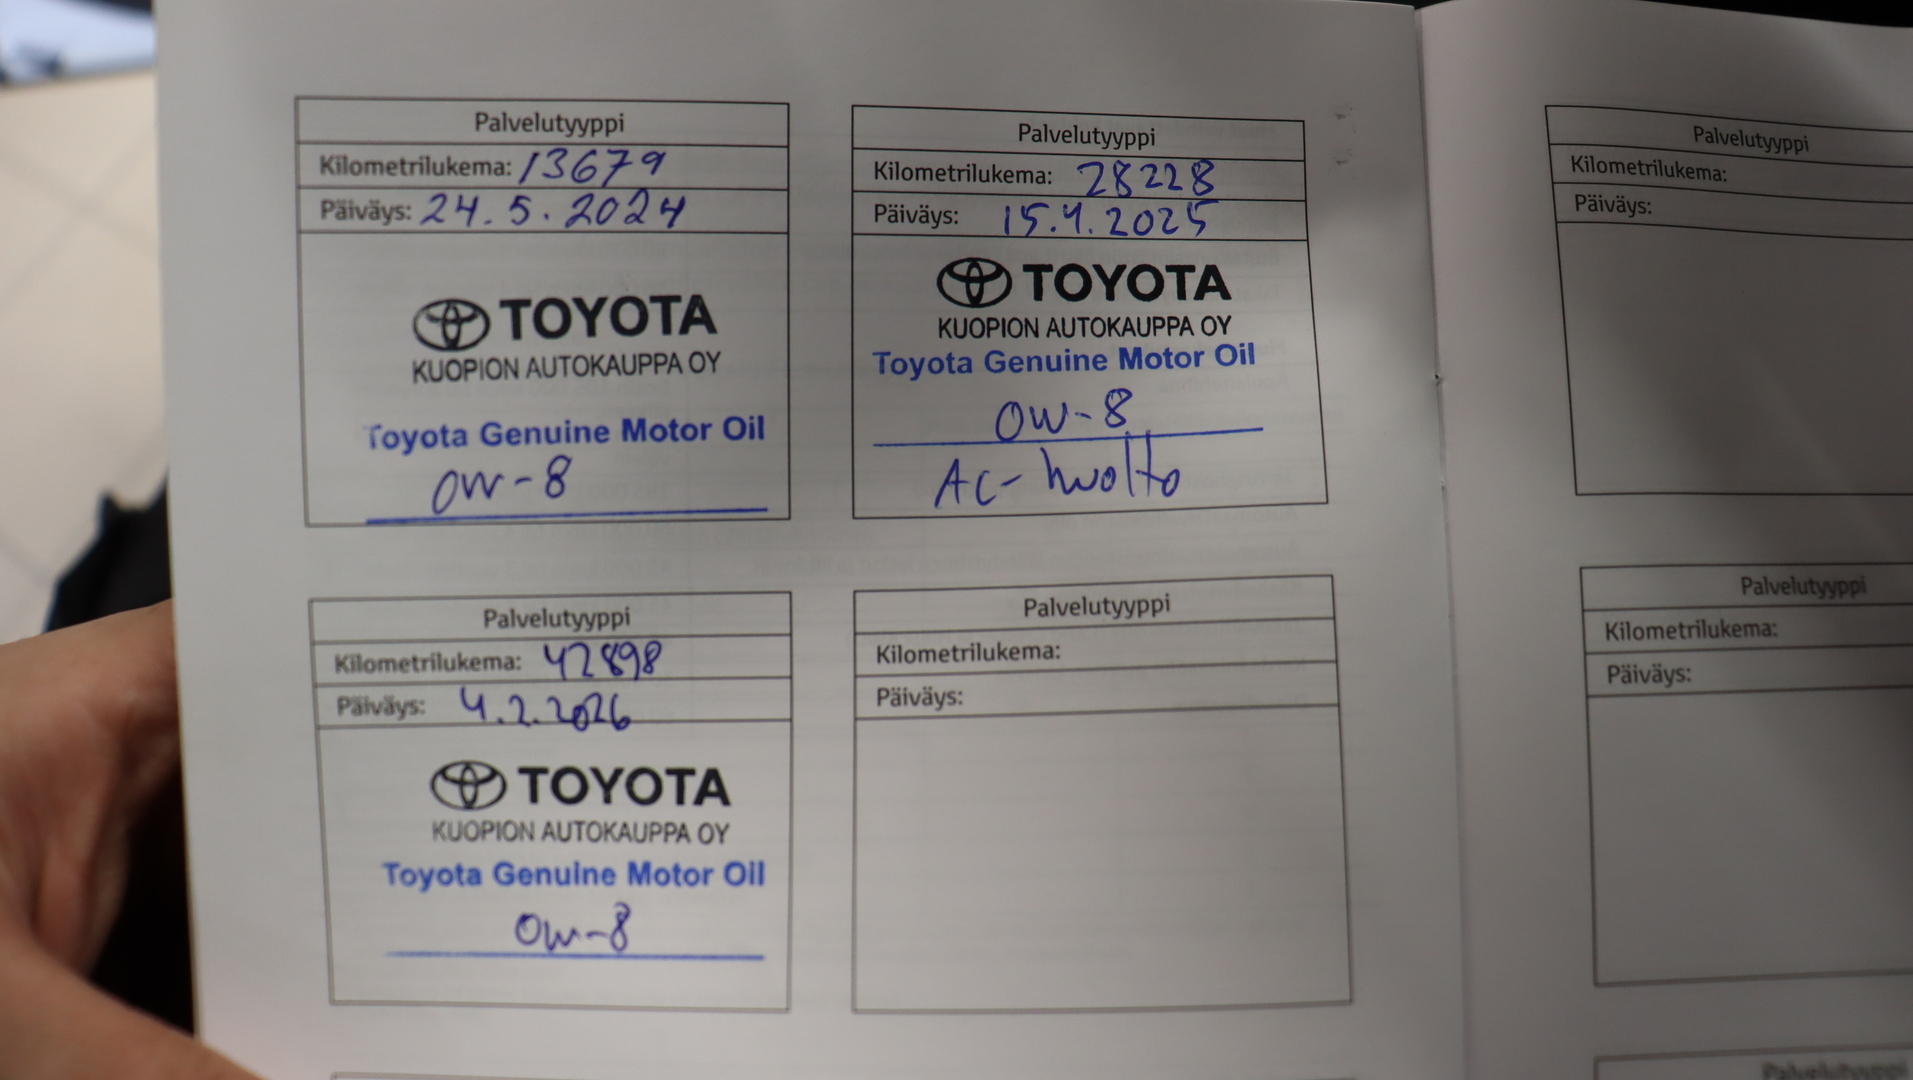 Palvelutyyppi
Kilometrilukema: 13679
Päiväys: 24.5.2024
TOYOTA
KUOPION AUTOKAUPPA OY
Toyota Genuine Motor Oil
0W-8
Palvelutyyppi
Kilometrilukema: 28228
Päiväys: 15.4.2025
TOYOTA
KUOPION AUTOKAUPPA OY
Toyota Genuine Motor Oil
0W-8
AC-huolto
Palvelutyyppi
Kilometrilukema: 42898
Päiväys: 4.2.2026
TOYOTA
KUOPION AUTOKAUPPA OY
Toyota Genuine Motor Oil
0W-8
Palvelutyyppi
Kilometrilukema:
Päiväys:
Palvelutyyppi
Kilometrilukema:
Päiväys:
Palvelutyyppi
Kilometrilukema:
Päiväys:
Palvelutyyppi